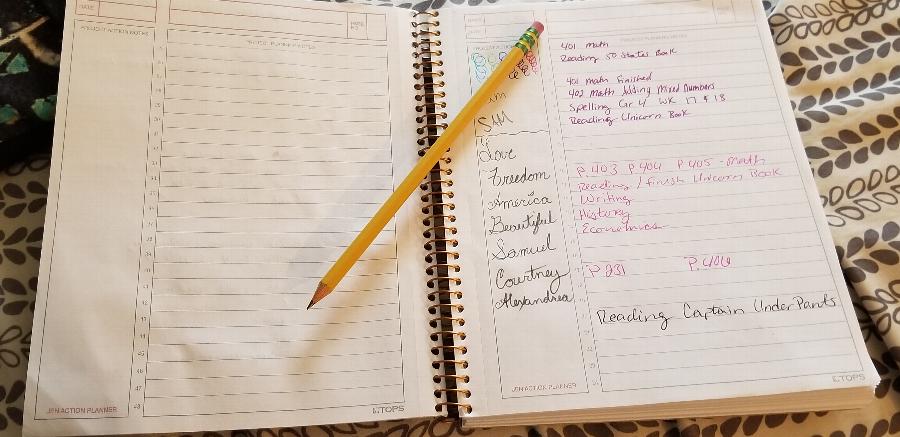 DATE
PROJECT ACTION NOTES
JEN ACTION PLANNER
TOPS
am
SAM
Love
Freedom
America
Beautiful
Samuel
Courtney
Alexandrea
JEN ACTION PLANNER
401 math
Reading 50 States Book
401 math Finished
402 Math Adding Mixed Numbers
Spelling Gr 4 WK 17 & 18
Reading Unicorn Book
P.403 P 404 P 405 - Math
Reading / finish Unicorn Book
Writing
History
Economics
P 231 P.406
Reading Captain UnderPants
TOPS